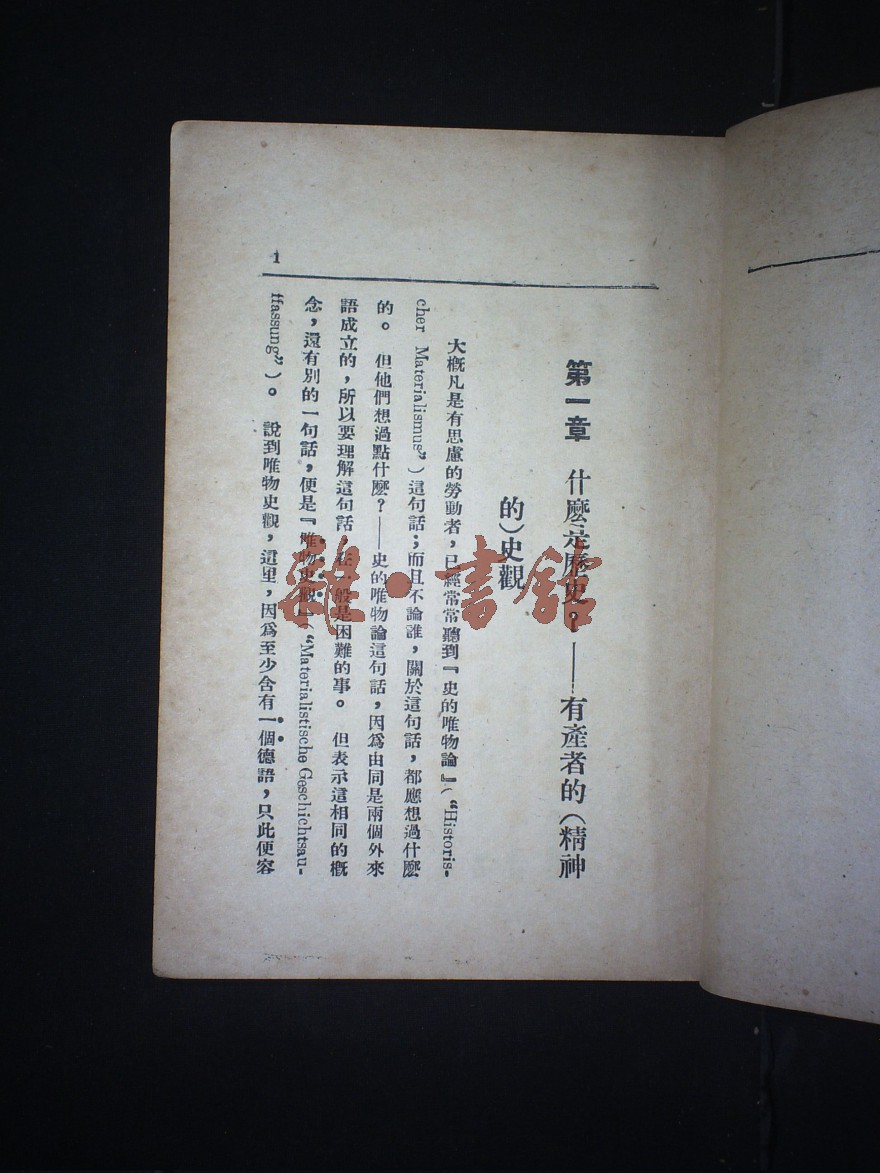 1
第一章 什麽是歷史？——有產者的(精神
的)史觀
大概凡是有思慮的勞動者，已經常常聽到『史的唯物論』(“Historis-
cher Materialismus”)這句話；而且不論誰，關於這句話，都應想過什麽
的。 但他們想過點什麽？——史的唯物論這句話，因爲由同是兩個外來
語成立的，所以要理解這句話，在一般是困難的事。 但表示這相同的概
念，還有別的一句話，便是『唯物史觀』(“Materialistische Geschichtsau-
ffassung”)。 說到唯物史觀，這里，因爲至少含有一個德語，只此便容
雜·書館